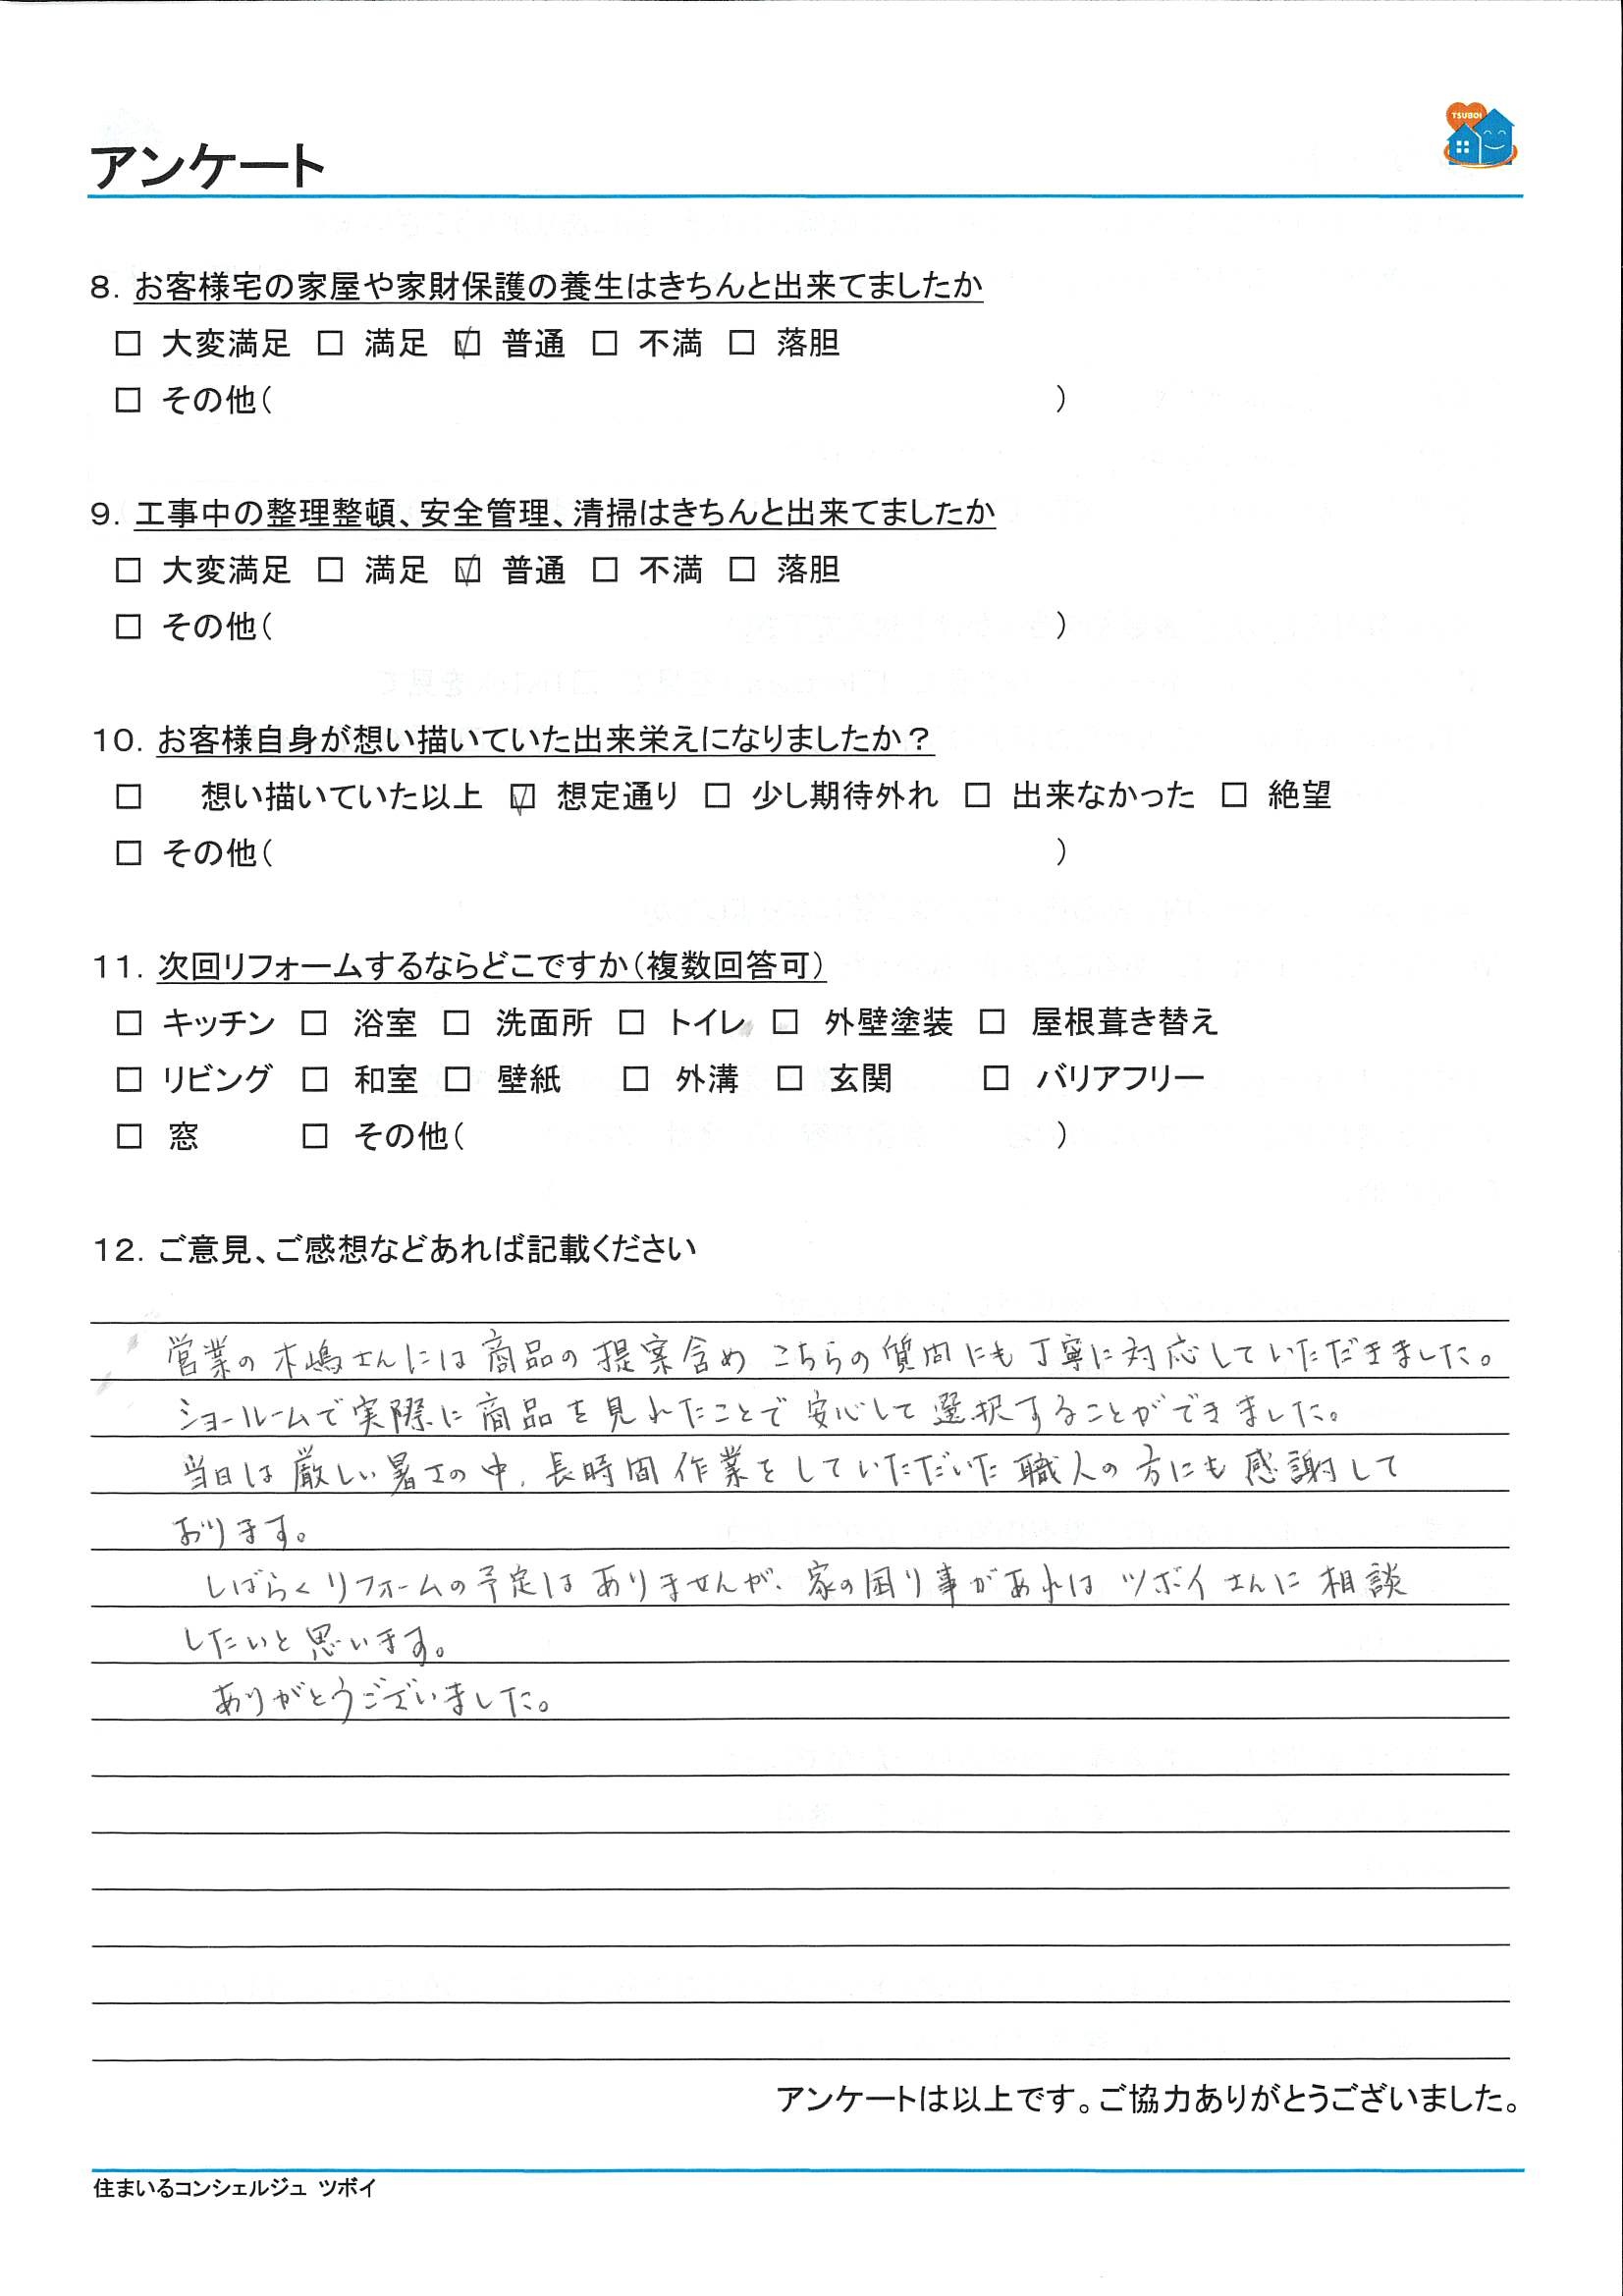 TSUBOI
アンケート
8. お客様宅の家屋や家財保護の養生はきちんと出来てましたか
□ 大変満足 □ 満足 ☑ 普通 □ 不満 □ 落胆
□ その他( )
9. 工事中の整理整頓、安全管理、清掃はきちんと出来てましたか
□ 大変満足 □ 満足 ☑ 普通 □ 不満 □ 落胆
□ その他( )
10. お客様自身が想い描いていた出来栄えになりましたか？
□ 想い描いていた以上 ☑ 想定通り □ 少し期待外れ □ 出来なかった □ 絶望
□ その他( )
11. 次回リフォームするならどこですか(複数回答可)
□ キッチン □ 浴室 □ 洗面所 □ トイレ □ 外壁塗装 □ 屋根葺き替え
□ リビング □ 和室 □ 壁紙 □ 外溝 □ 玄関 □ バリアフリー
□ 窓 □ その他( )
12. ご意見、ご感想などあれば記載ください
営業の木嶋さんには商品の提案含めこちらの質問にも丁寧に対応していただきました。
ショールームで実際に商品を見れたことで安心して選択することができました。
当日は厳しい暑さの中、長時間作業をしていただいた職人の方にも感謝して
おります。
しばらくリフォームの予定はありませんが、家の困り事があれば ツボイさんに相談
したいと思います。
ありがとうございました。
アンケートは以上です。ご協力ありがとうございました。
住まいるコンシェルジュ ツボイ